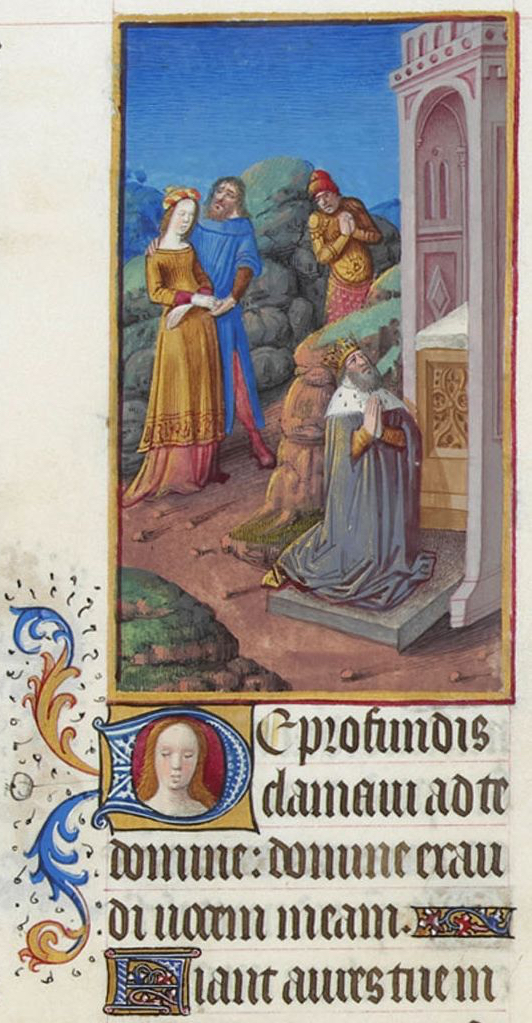 De profundis
clamaui ad te
domine: domine exau
di uocem meam.
Fiant aures tue in